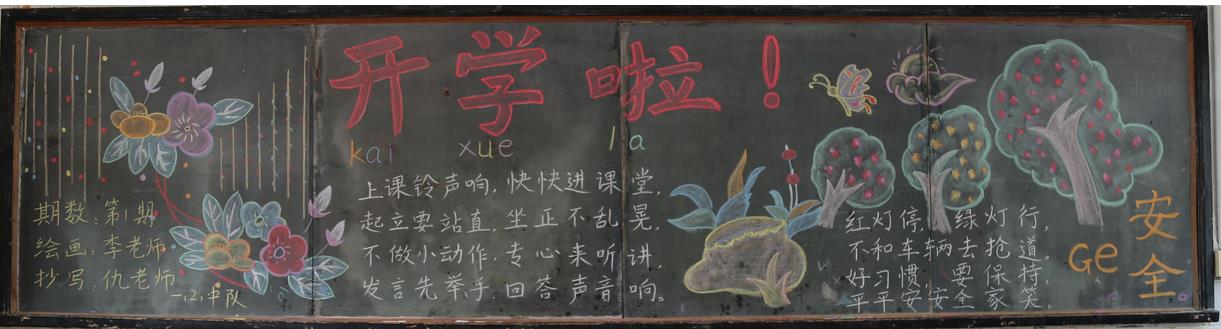 开学啦！
kai xue la
期数：第1期
绘画：李老师
抄写：仇老师
一、2、中队
上课铃声响，快快进课堂，
起立要站直，坐正不乱晃，
不做小动作，专心来听讲，
发言先举手，回答声音响。
红灯停，绿灯行，
不和车辆去抢道。
好习惯，要保持，
平平安安全家笑。
安全
Ge